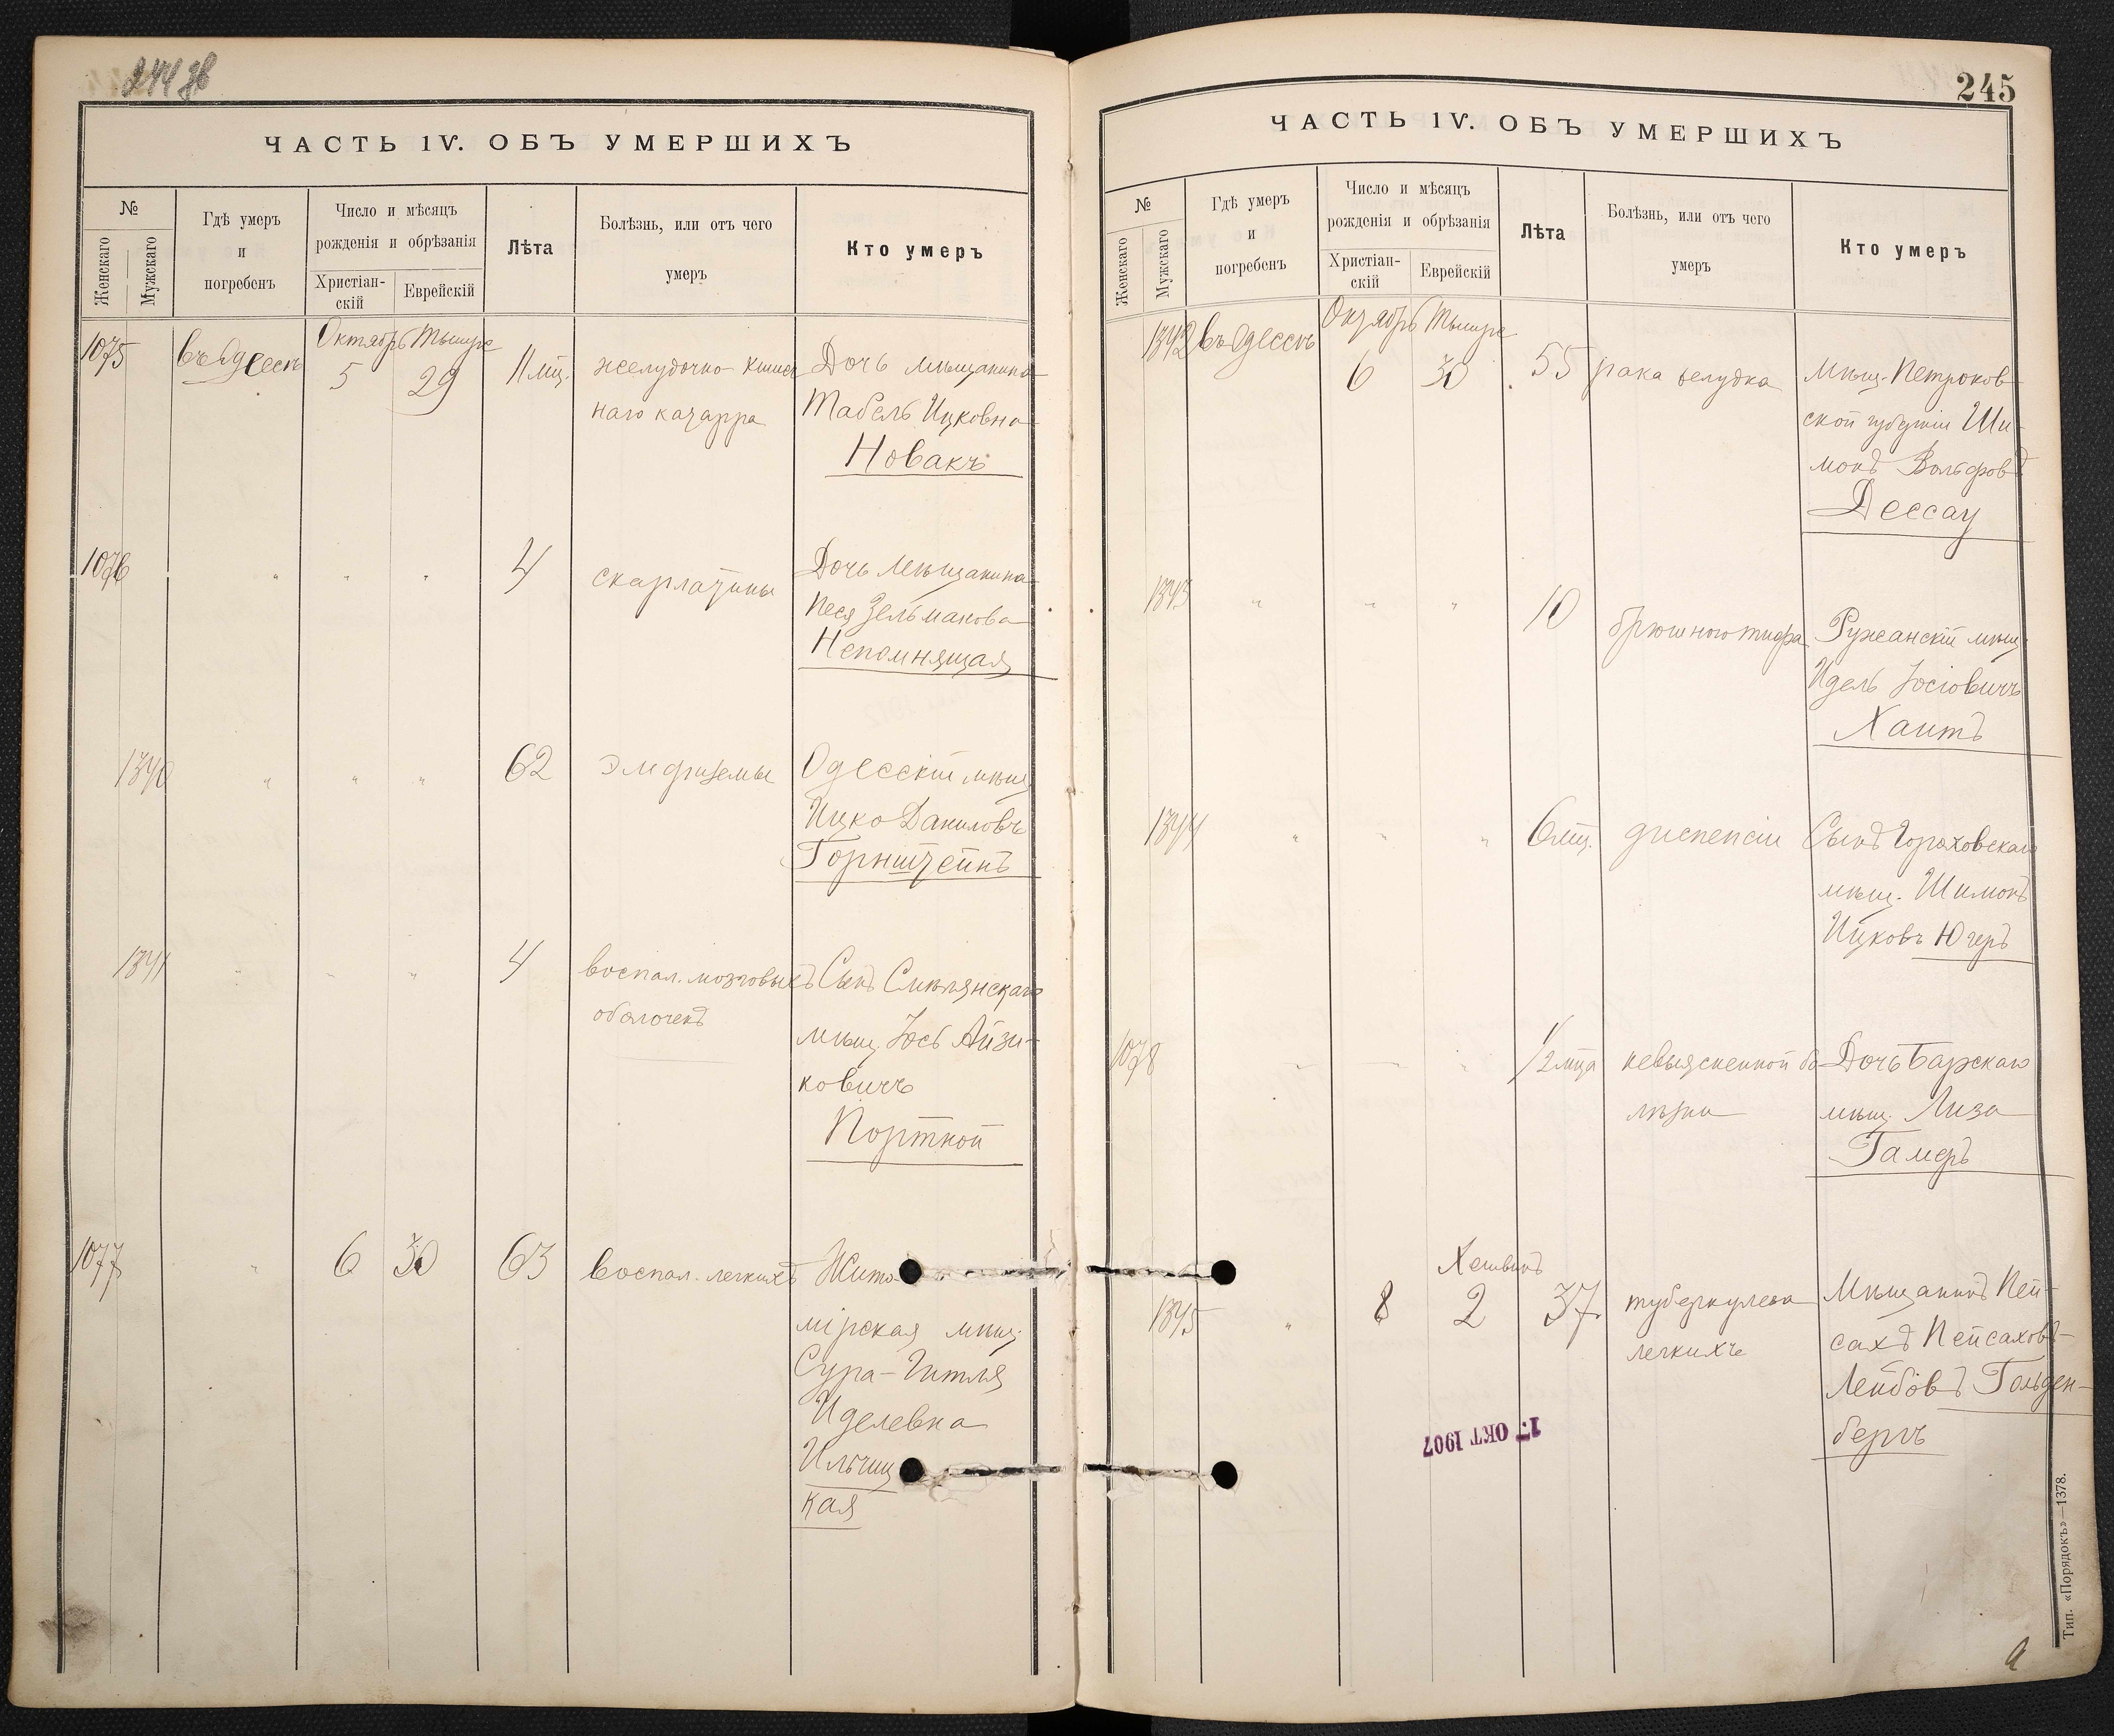 244 об
ЧАСТЬ IV. ОБЪ УМЕРШИХЪ
№
Женскаго
Мужскаго
Гдѣ умеръ
и
погребенъ
Число и мѣсяцъ
рожденія и обрѣзанія
Христіан-
скій
Еврейскій
Лѣта
Болѣзнь, или отъ чего
умеръ
Кто умеръ
Октябрь Тышре
1075 въ Одессѣ 5 29 11 мц. желудочно-кишеч Дочь мѣщанина
наго катарра Табель Ицковна
Новакъ
1076 " " " 4 скарлатины Дочь мѣщанина
Песя Зельманова
Непомнящая
1340 " " " 62 эмфиземы Одесскій мѣщ
Ицко Даниловъ
Горнштейнъ
1341 " " " 4 воспал. мозговыхъ Сынъ Смѣлянскаго
оболочекъ
мѣщ. Іось Айзи-
ковичъ
Портной
1077 " 6 30 63 воспал. легкихъ Жито-
мірская мѣщ.
Сура-Гитля
Иделевна
Ильчиц
кая
245
ЧАСТЬ IV. ОБЪ УМЕРШИХЪ
№
Женскаго
Мужскаго
Гдѣ умеръ
и
погребенъ
Число и мѣсяцъ
рожденія и обрѣзанія
Христіан-
скій
Еврейскій
Лѣта
Болѣзнь, или отъ чего
умеръ
Кто умеръ
Октябрь Тышре
1342 въ Одессѣ 6 30 55 рака желудка Мѣщ. Петроков-
ской губерніи Ши-
монъ Вольфовъ
Дессау
1343 " " " 10 брюшного тифа Ружанскій мѣщ
Идель Іосіовичъ
Хаитъ
1344 " " " 6 мц. диспепсіи Сынъ Гороховскаго
мѣщ. Шимонъ
Ицковъ Югеръ
1078 " " " 1/2 мца невыясненной бо- Дочь Барскаго
лѣзни мѣщ. Лиза
Гамеръ
Хешвонъ
1345 " 8 2 37 туберкулеза Мѣщанинъ Пей-
легкихъ сахъ Пейсаховъ-
Лейбовъ Гольден-
бергъ
17 ОКТ 1907
Тип. «Порядокъ»—1378.